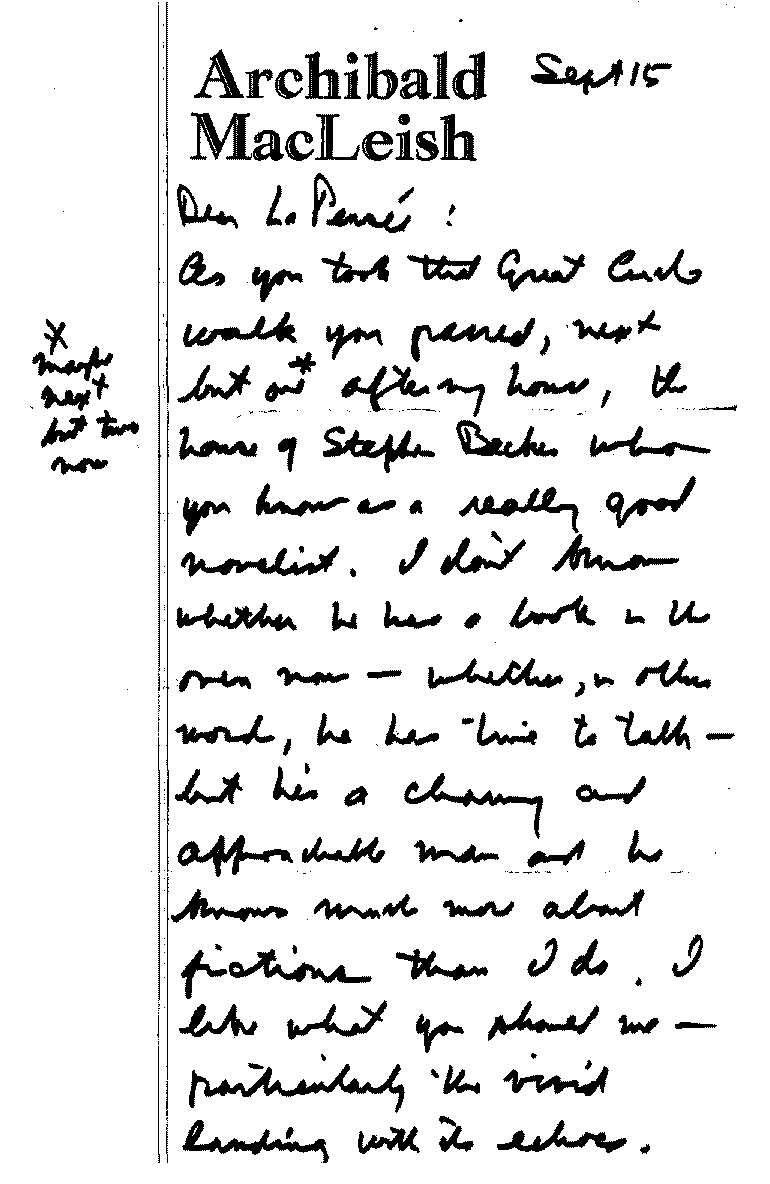 Archibald
MacLeish
Sept 15
Dear La Penné :
As you took that Great Circle
walk you passed, next
but one* after my house, the
house of Stephen Becker whom
you know as a really good
novelist. I don't know
whether he has a book in the
oven now — whether, in other
words, he has time to talk —
but he's a charming and
approachable man and he
knows much more about
fictions than I do. I
like what you showed me —
particularly the vivid
landing with its echoes.
*
maybe
next
but two
now